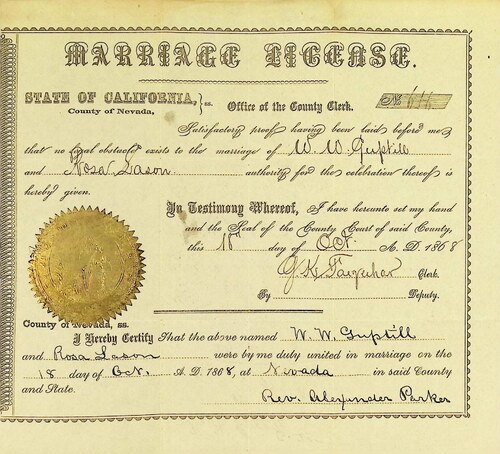 MARRIAGE LICENSE.
STATE OF CALIFORNIA, } ss. Office of the County Clerk. No.
County of Nevada,
Satisfactory proof having been laid before me
that no legal obstacle exists to the marriage of W. W. Guptill
and Rosa Lason authority for the celebration thereof is
hereby given.
In Testimony Whereof, I have hereunto set my hand
and the Seal of the County Court of said County,
this 18th day of Oct. A. D. 1868
J. K. Farquhar Clerk.
By Deputy.
County of Nevada, ss.
I Hereby Certify That the above named W. W. Guptill
and Rosa Lason were by me duly united in marriage on the
18 day of Oct. A. D. 1868, at Nevada in said County
and State.
Rev. Alexander Parker